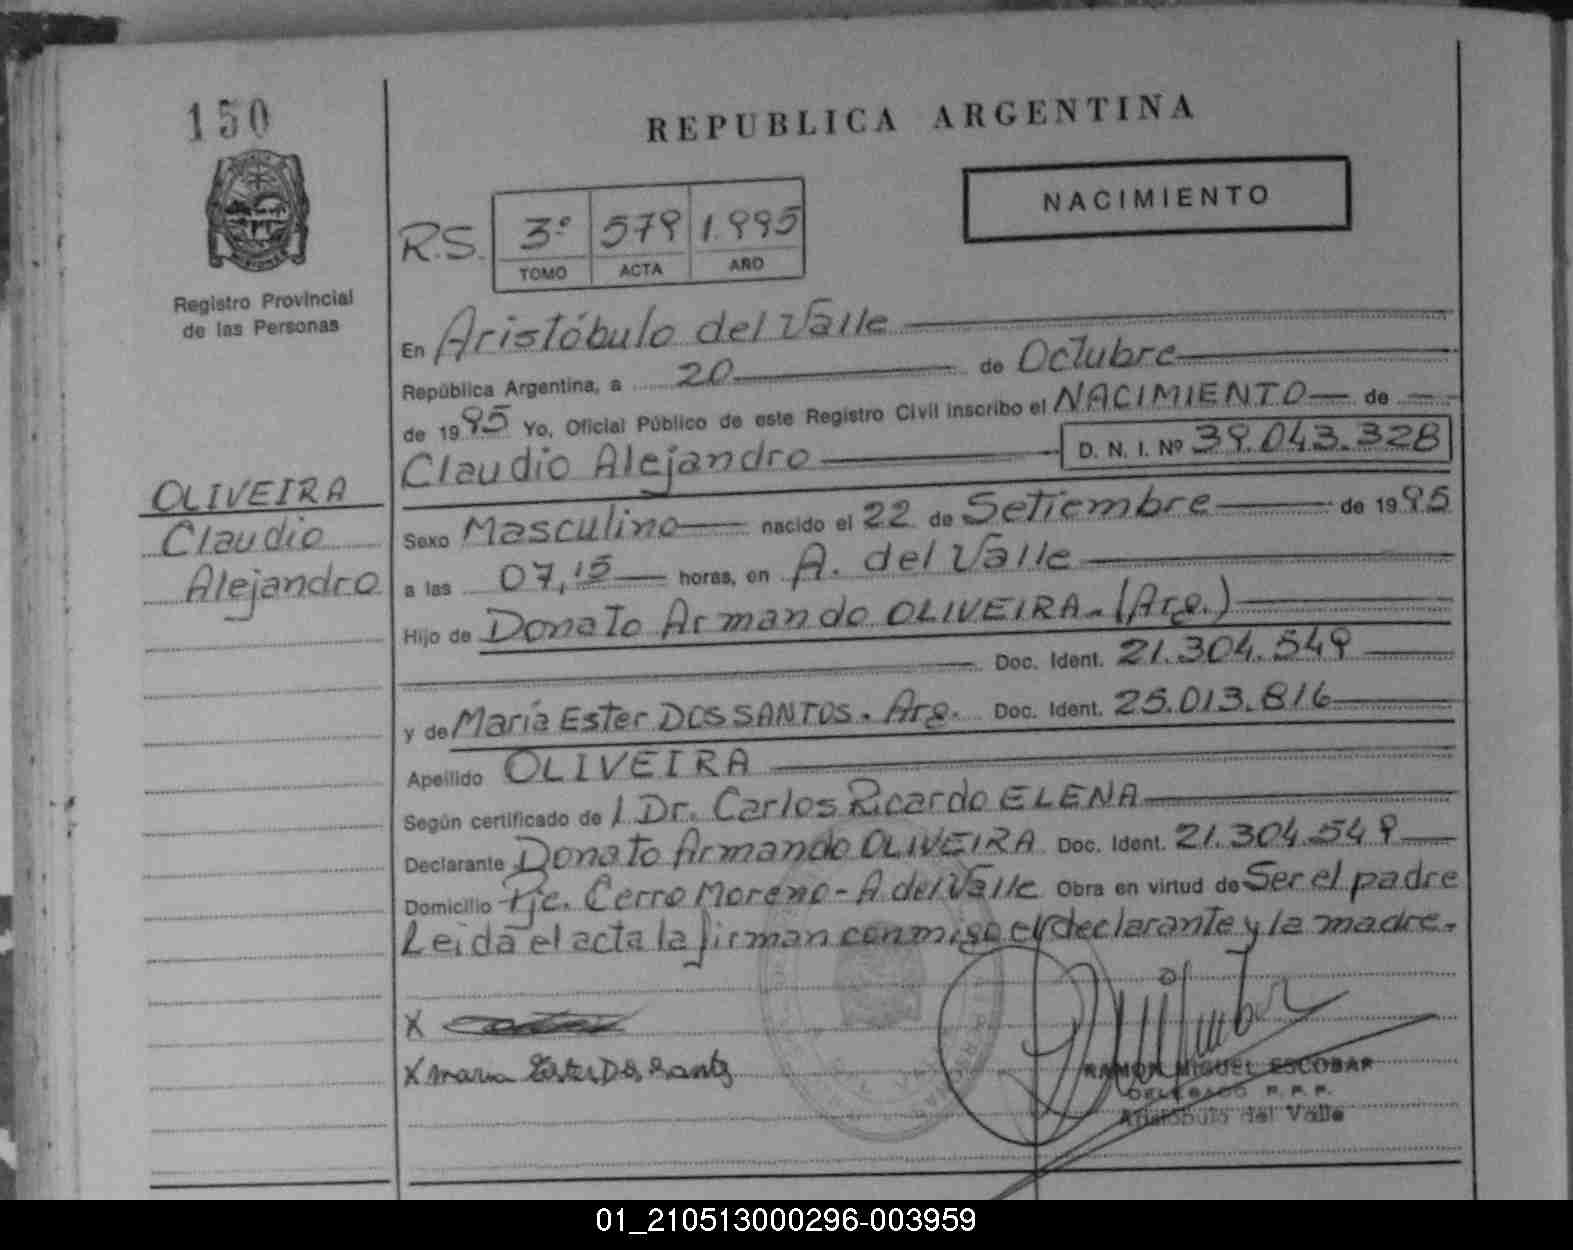 150
REPUBLICA ARGENTINA
NACIMIENTO
R.S. 3º 579 1.995
TOMO ACTA AÑO
Registro Provincial
de las Personas
En Aristóbulo del Valle
República Argentina, a 20 de Octubre
de 1995 Yo, Oficial Público de este Registro Civil inscribo el NACIMIENTO de
Claudio Alejandro D. N. I. Nº 39.043.328
OLIVEIRA
Claudio
Alejandro
Sexo Masculino nacido el 22 de Setiembre de 1995
a las 07,15 horas, en A. del Valle
Hijo de Donato Armando OLIVEIRA.(Arg.)
Doc. Ident. 21.304.549
y de María Ester DOS SANTOS. Arg. Doc. Ident. 25.013.816
Apellido OLIVEIRA
Según certificado de l Dr. Carlos Ricardo ELENA
Declarante Donato Armando OLIVEIRA Doc. Ident. 21.304.549
Domicilio Pje. Cerro Moreno - A. del Valle Obra en virtud de Ser el padre
Leida el acta la firman conmigo el declarante y la madre.
X
X maria Ester Dos Santos
RAMON MIGUEL ESCOBAR
DELEGADO R. P. P.
Aristóbulo del Valle
01_210513000296-003959